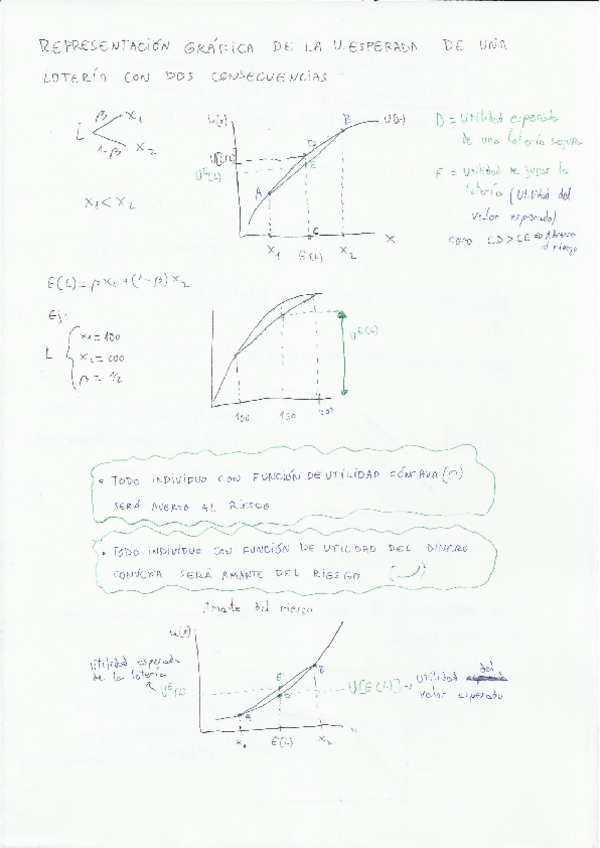 REPRESENTACIÓN GRÁFICA DE LA U. ESPERADA DE UNA
LOTERÍA CON DOS CONSECUENCIAS
L
β x1
1-β x2
x1 < x2
U(x)
U(x)
B
D
E
A
C
x1 E(L) x2 x
D = Utilidad esperada
de una lotería segura
E = Utilidad de jugar la
lotería (Utilidad del
valor esperado)
como CD > CE ⇒ Adverso
al riesgo
E(L) = βx1 + (1-β)x2
Ej:
L
x1 = 100
x2 = 200
β = 1/2
U^E(L)
100 150 200
• TODO INDIVIDUO CON FUNCIÓN DE UTILIDAD CÓNCAVA (∩)
SERÁ AVERSO AL RIESGO
• TODO INDIVIDUO CON FUNCIÓN DE UTILIDAD DEL DINERO
CONVEXA SERÁ AMANTE DEL RIESGO
Amante del riesgo
Utilidad esperada
de la lotería
U^E(L)
E
B
D
A
U[E(L)] → Utilidad del
valor esperado
x1 E(L) x2